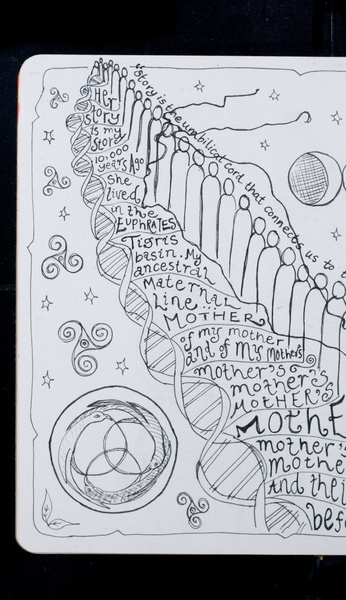 "Story is the umbilical cord that connects us to t
Her
story
is my
story
10,000
years Ago
she
lived
in the
EUPHRATES
Tigris
basin. My
ancestral
Maternal
Line. Na
MOTHER
of my mother
and of My Mother's
mother's
mother's
MOTHER'S
MOTHE
mother's
mothe
And thei
befo